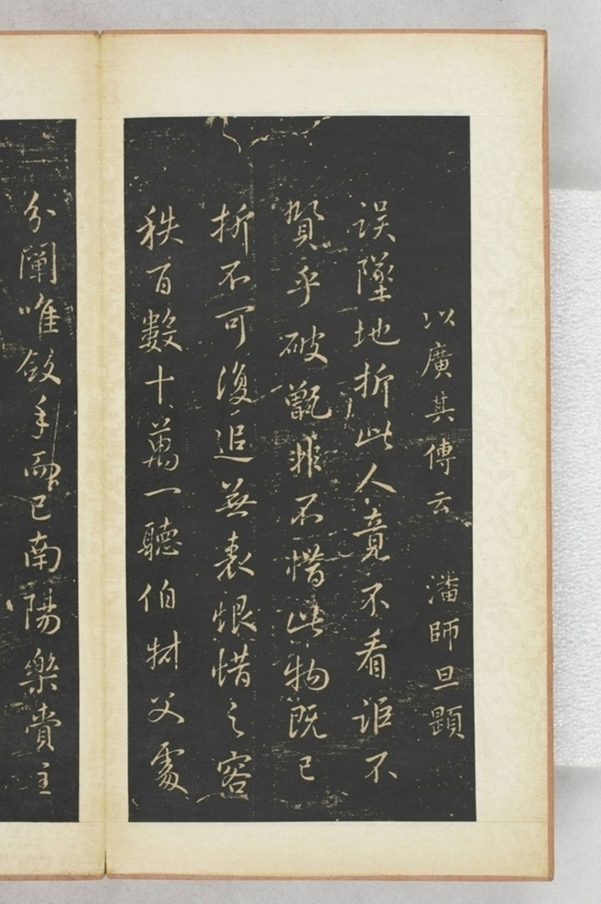 以廣其傳云　潘師旦題
誤墜地折此人竟不看詎不
賢乎破甑非不惜此物既已
折不可復追無表恨惜之容
秩百數十萬一聽伯材父處
分闡唯斂手而已南陽樂賁主